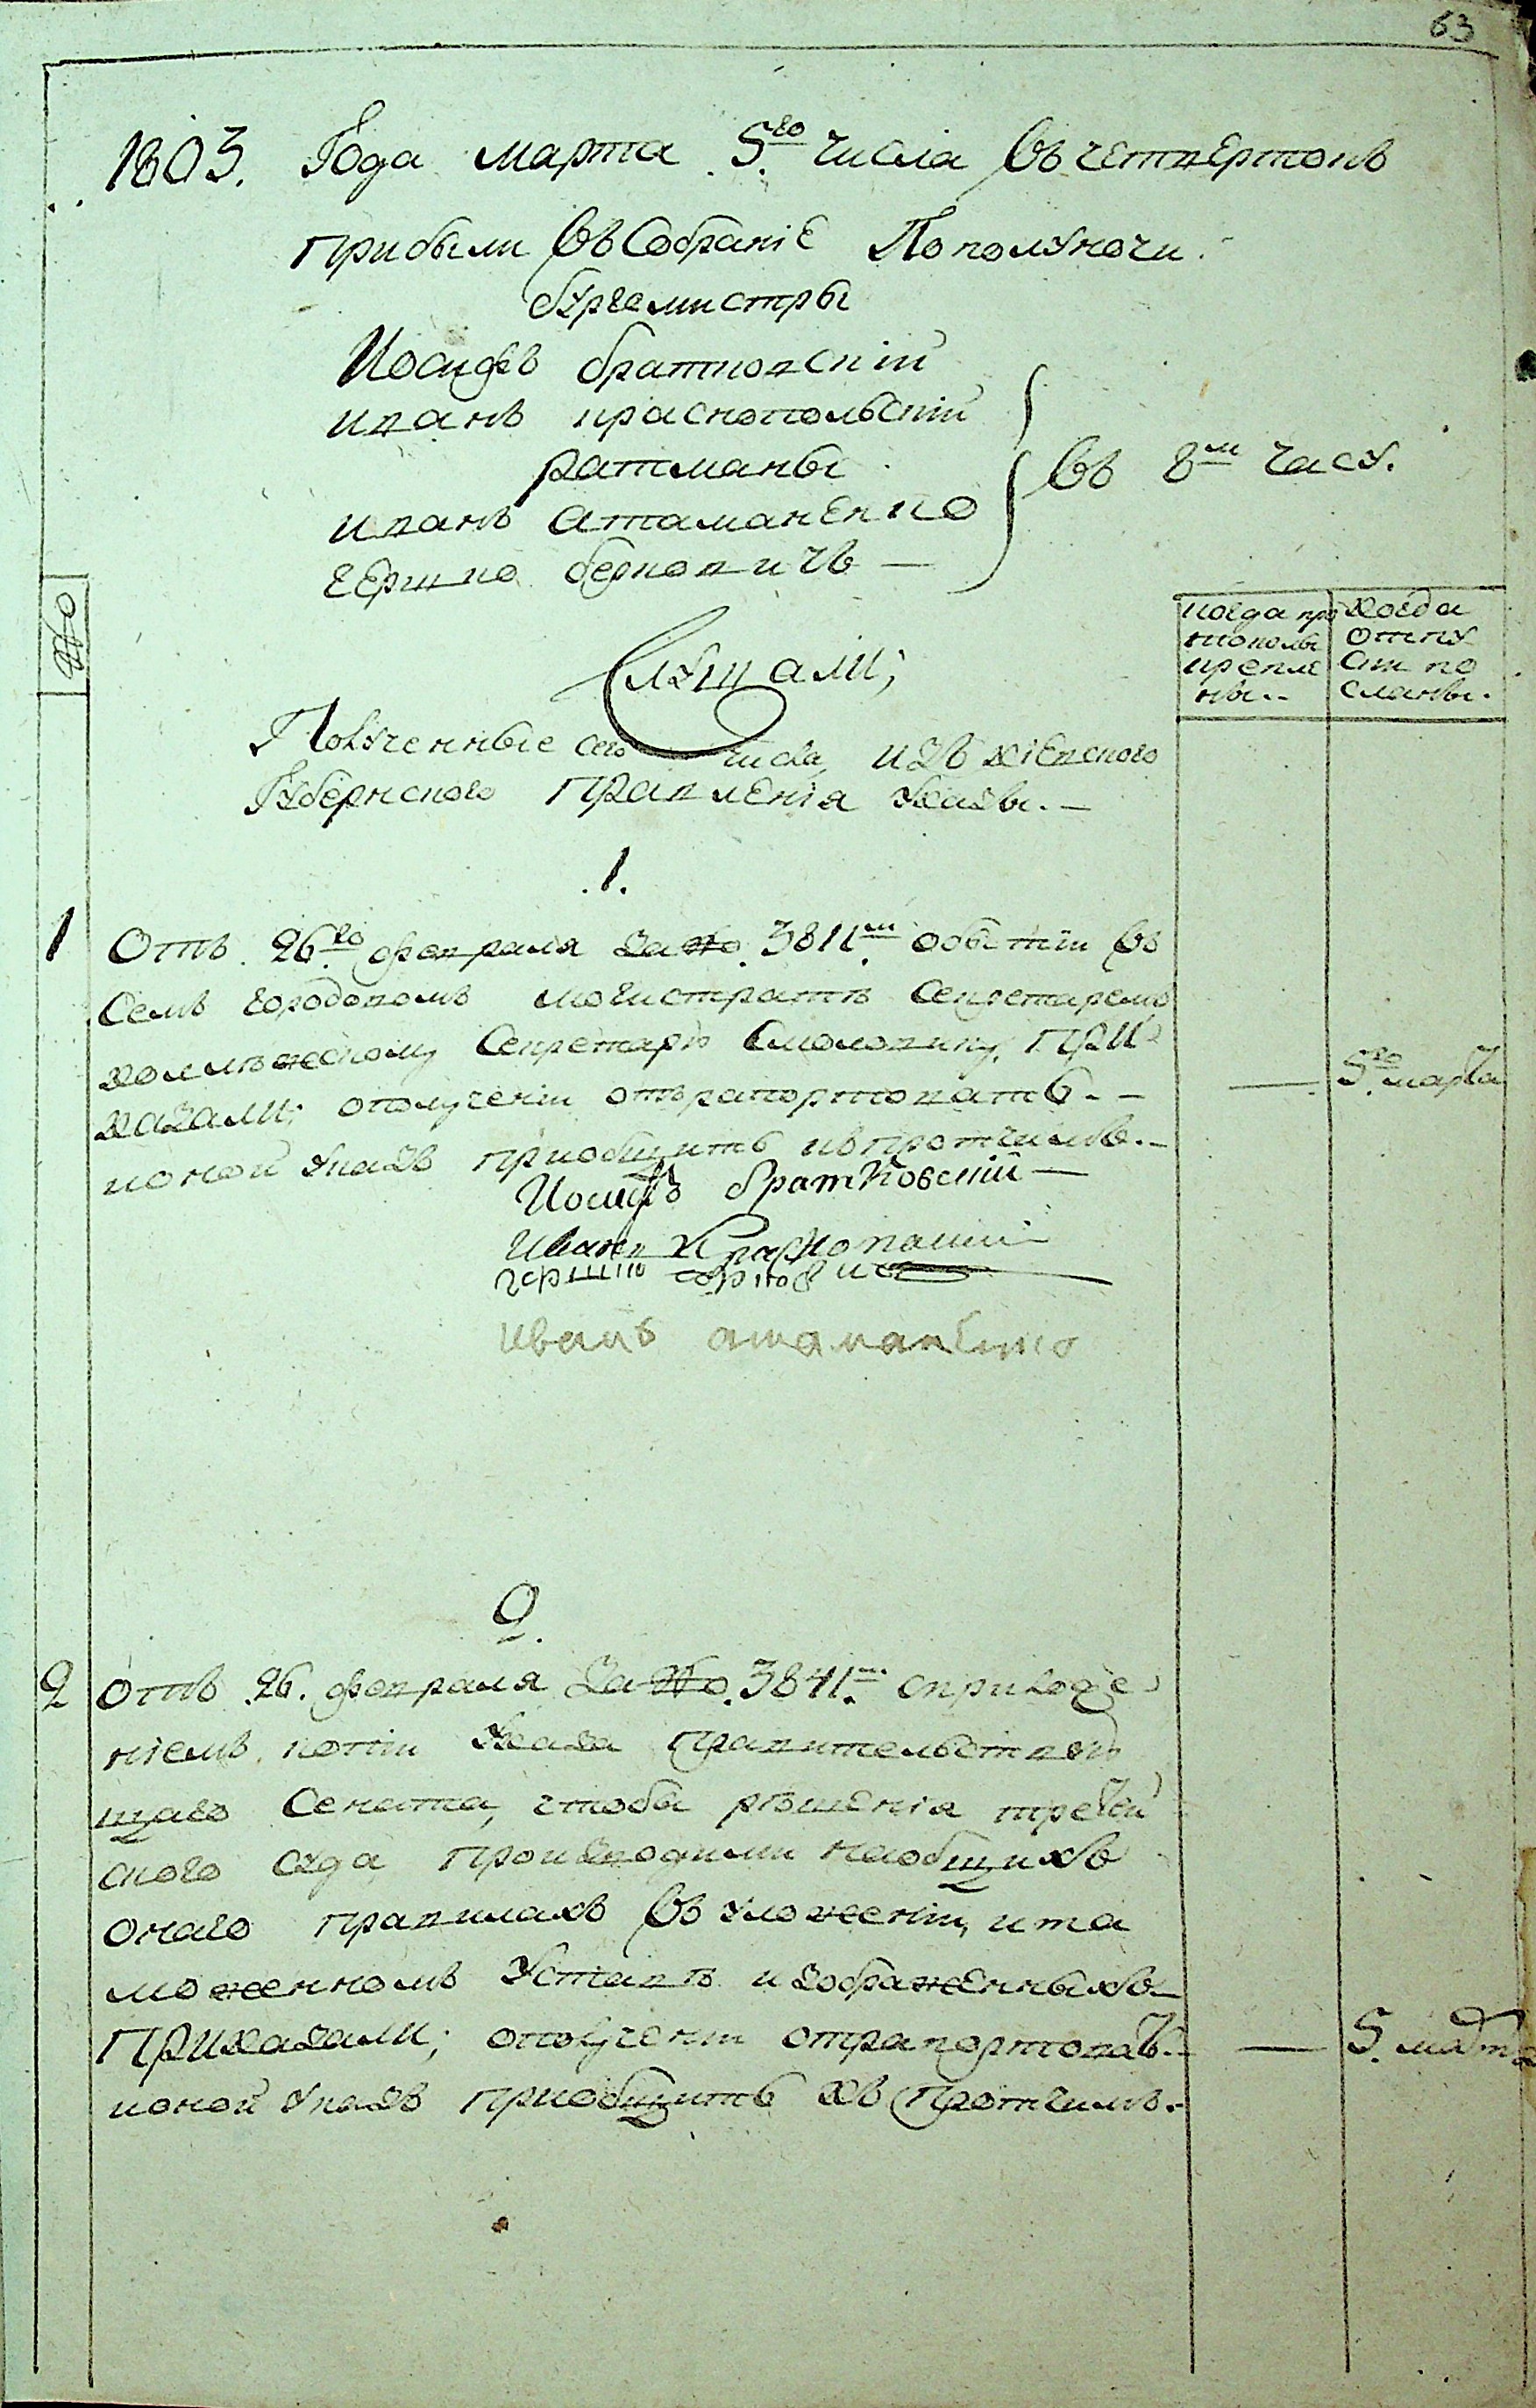 63
1803. Года марта 5.го числа въ четвертокъ
прибыли въ Собраніе По полуночи.
бургемистры
Иосифъ братковскій
иванъ краснопольскій
ратманы
иванъ атаманенко
гершко берковичъ —
въ 8м часу.
No
когда про
токолы
крепле
ны..
когда
отпу
ски по
сланы.
Слушали;
Полученные сего числа, изъ кіевского
Губернского Правленія указы. —
.1.
1 Отъ 26.го февраля за No. 3811.м объ бытіи въ
семъ городовомъ могистратѣ Секретаремъ
колѣжскому Секретарю Смоловику, ПРИ
КАЗАЛИ; ополученіи отърапортовать. —
ионой указъ приобщить къ протчимъ. —
— 5.го марта
Иосифъ братковскій —
Иванъ Краснопольскій
гершко берковичъ
иванъ атаманенко
2.
2 отъ 26. февраля за No. 3841.м сприложе
ніемъ копіи указа Правительствую
щаго Сената, чтобы рѣшенія третей
ского суда производими наобщихъ
онаго правилахъ въ уложеніи, и та
моженномъ уставѣ изображенныхъ —
ПРИКАЗАЛИ; ополученіи отрапортовать. —
ионой указъ приобщить къ протчимъ. —
— 5. марта